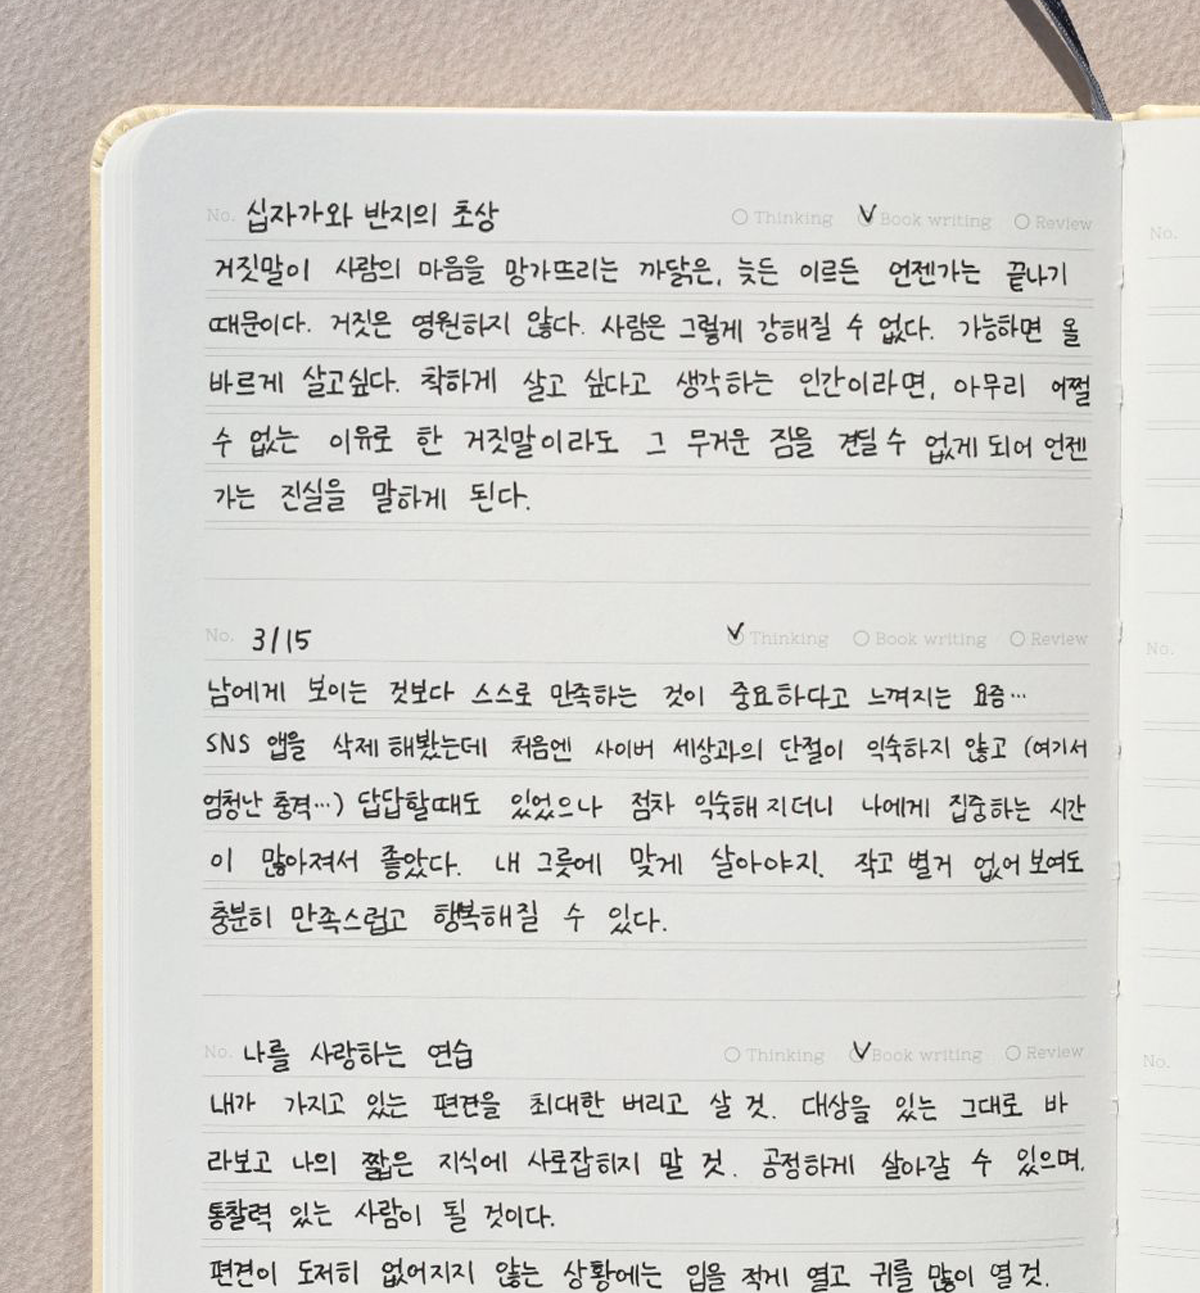 No. 십자가와 반지의 초상 Thinking Book writing Review
거짓말이 사람의 마음을 망가뜨리는 까닭은, 늦든 이르든 언젠가는 끝나기
때문이다. 거짓은 영원하지 않다. 사람은 그렇게 강해질 수 없다. 가능하면 올
바르게 살고싶다. 착하게 살고 싶다고 생각하는 인간이라면, 아무리 어쩔
수 없는 이유로 한 거짓말이라도 그 무거운 짐을 견딜 수 없게 되어 언젠
가는 진실을 말하게 된다.
No. 3/15 Thinking Book writing Review
남에게 보이는 것보다 스스로 만족하는 것이 중요하다고 느껴지는 요즘…
SNS 앱을 삭제해봤는데 처음엔 사이버 세상과의 단절이 익숙하지 않고 (여기서
엄청난 충격…) 답답할때도 있었으나 점차 익숙해지더니 나에게 집중하는 시간
이 많아져서 좋았다. 내 그릇에 맞게 살아야지. 작고 별거 없어보여도
충분히 만족스럽고 행복해질 수 있다.
No. 나를 사랑하는 연습 Thinking Book writing Review
내가 가지고 있는 편견을 최대한 버리고 살 것. 대상을 있는 그대로 바
라보고 나의 짧은 지식에 사로잡히지 말 것. 공정하게 살아갈 수 있으며,
통찰력 있는 사람이 될 것이다.
편견이 도저히 없어지지 않는 상황에는 입을 적게 열고 귀를 많이 열 것.
No.
No.
No.